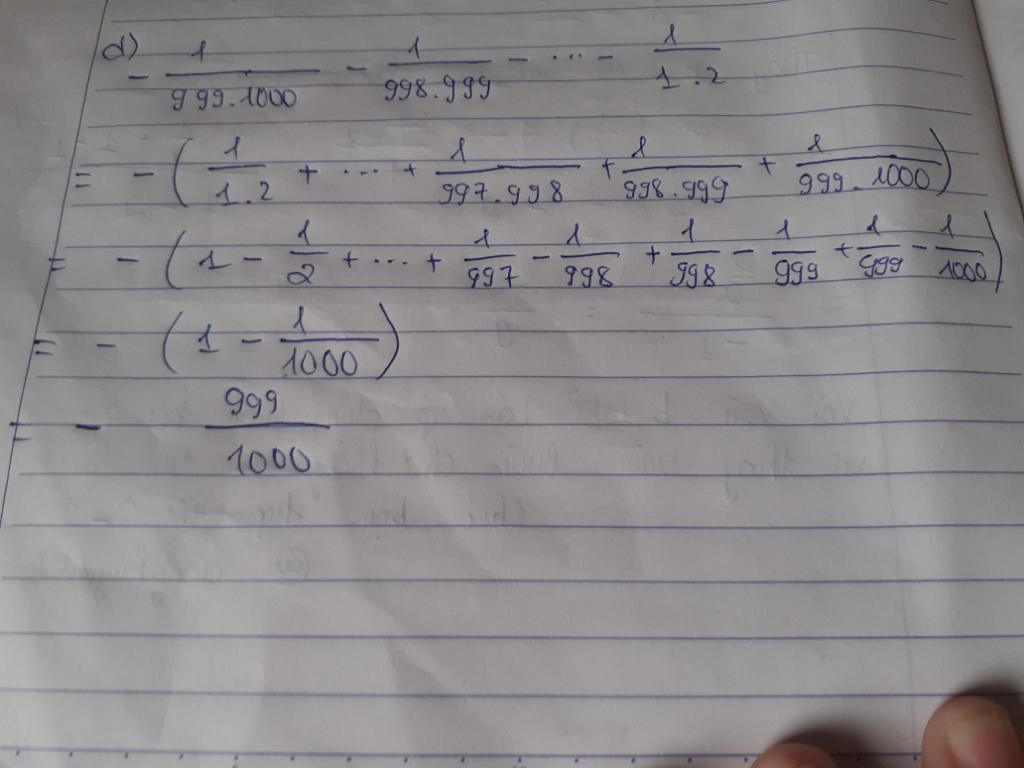 d) - 1/999.1000 - 1/998.999 - ... - 1/1.2
= - ( 1/1.2 + ... + 1/997.998 + 1/998.999 + 1/999.1000 )
= - ( 1 - 1/2 + ... + 1/997 - 1/998 + 1/998 - 1/999 + 1/999 - 1/1000 )
= - ( 1 - 1/1000 )
= - 999/1000